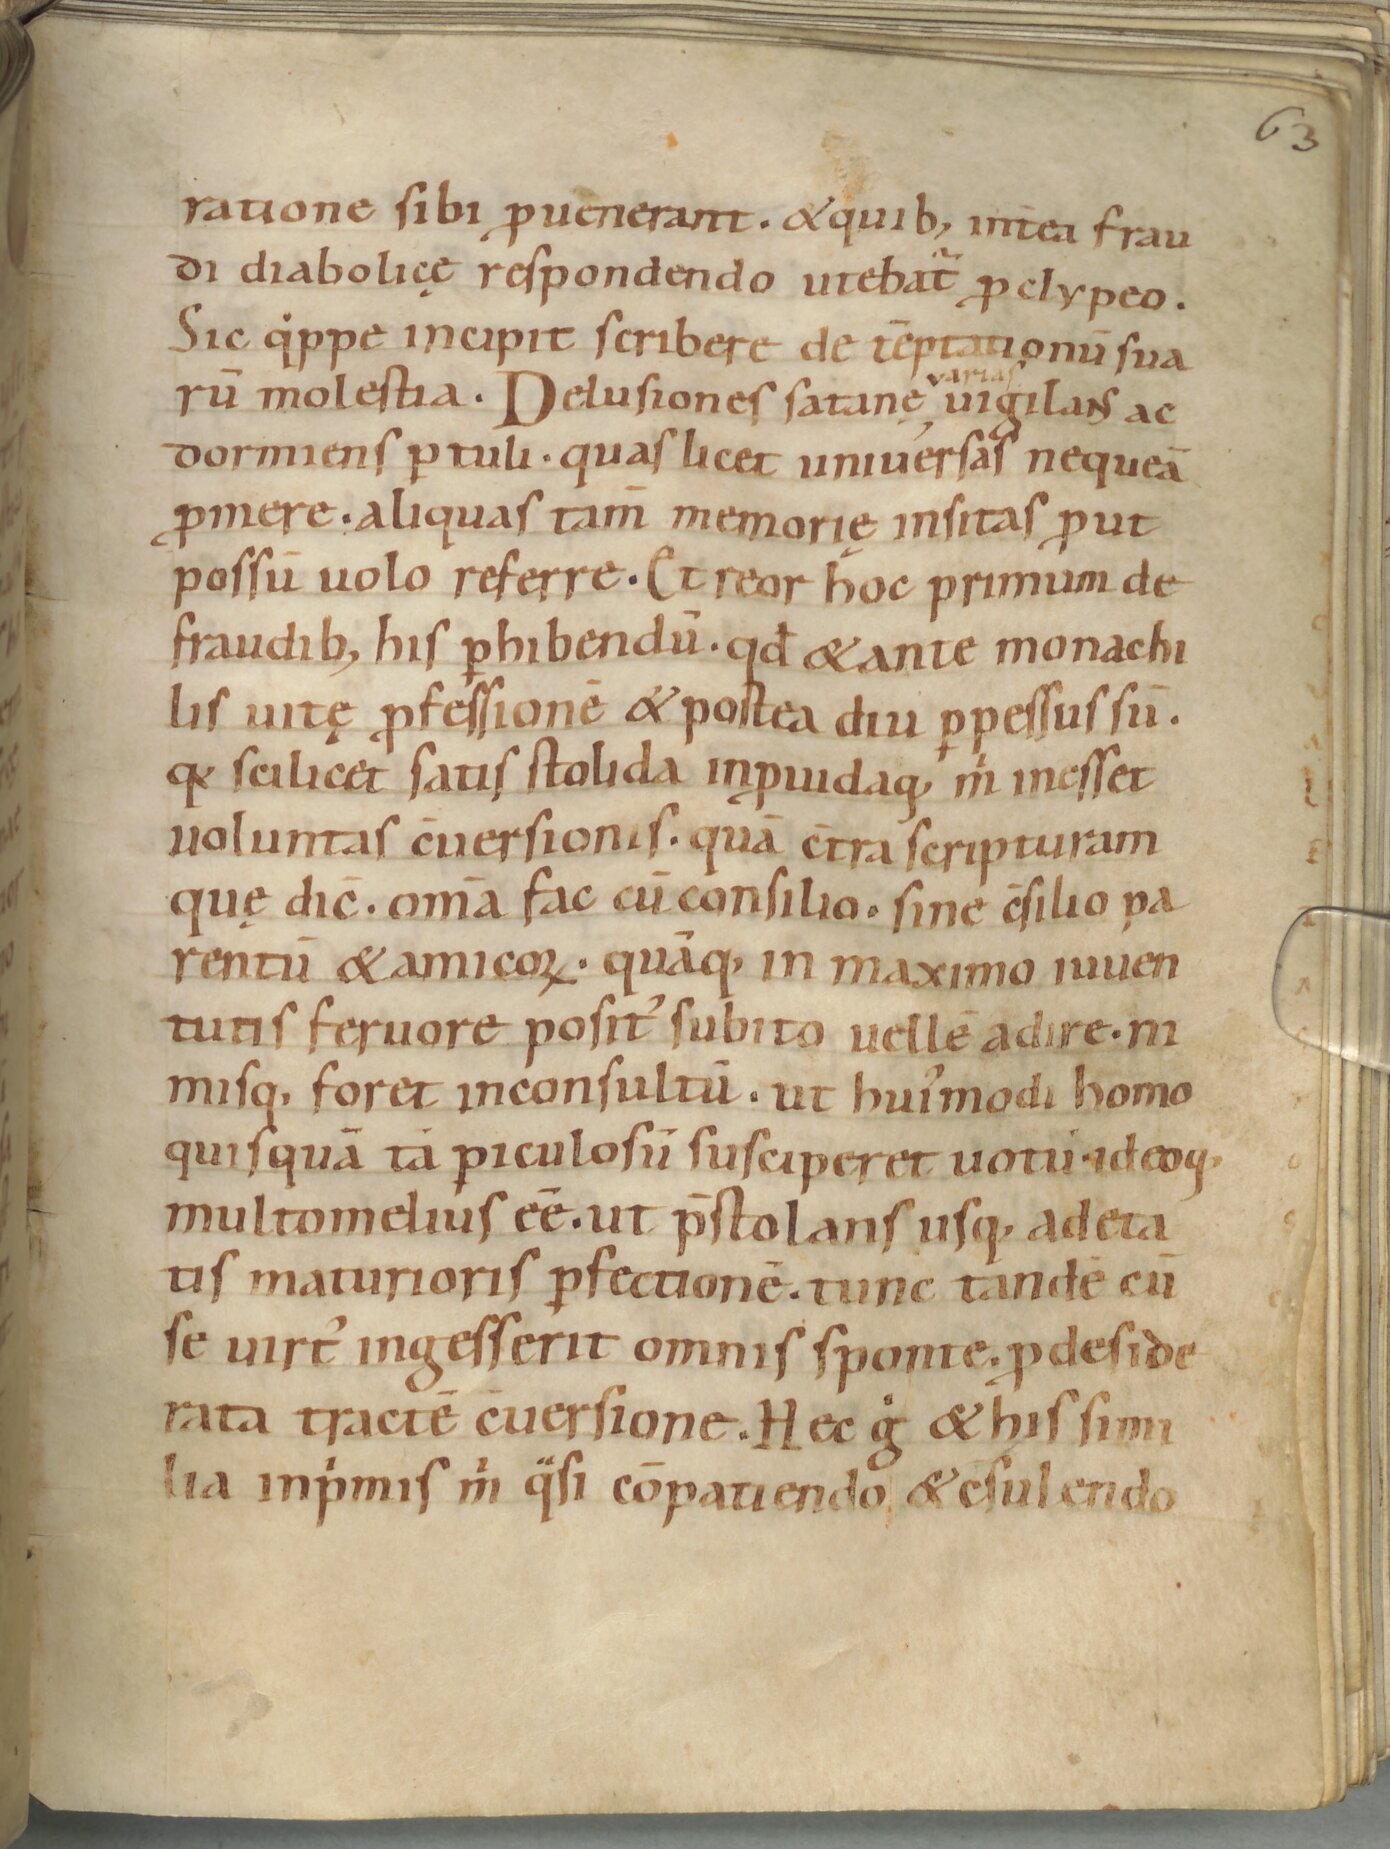 63
ratione sibi ꝓuenerant. &quib; int̄ea frau
di diabolicę respondendo utebat᷑ ꝓ clypeo.
Sic qͥppe incipit scribere de tēptationū sua
rū molestia. Delusiones satanę varias uigilans ac
dormiens ꝑtuli. quas licet uniuersas nequeā
ꝓmere. aliquas tam̄ memorię insitas ꝓut
possū uolo referre. Et reor hoc primum de
fraudib; his ꝑhibendū. qđ &ante monachi
lis uitę ꝓfessionē & postea diu ꝑpessus sū.
qꝫ scilicet satis stolida inꝓuidaq; mͥ inesset
uoluntas c̄uersionis. quā c̄tra scripturam
quę dic̄. om̄a fac cū consilio. sine c̄silio pa
rentū & amicoꝝ. quāq; in maximo iuuen
tutis feruore positꝰ subito uellē adire. ni
misq; foret inconsultū. ut huiꝰmodi homo
quisquā tā ꝑiculosū susciperet uotū. ideoq;
multomelius eē. ut p̄stolans usq; ad eta
tis maturioris ꝑfectionē. tunc tandē cū
se uirtꝰ ingesserit omnis sponte. ꝓ deside
rata tractē c̄uersione. Hec gͦ & his simi
lia inpͥmis mͥ qͣsi cōpatiendo & c̄sulendo